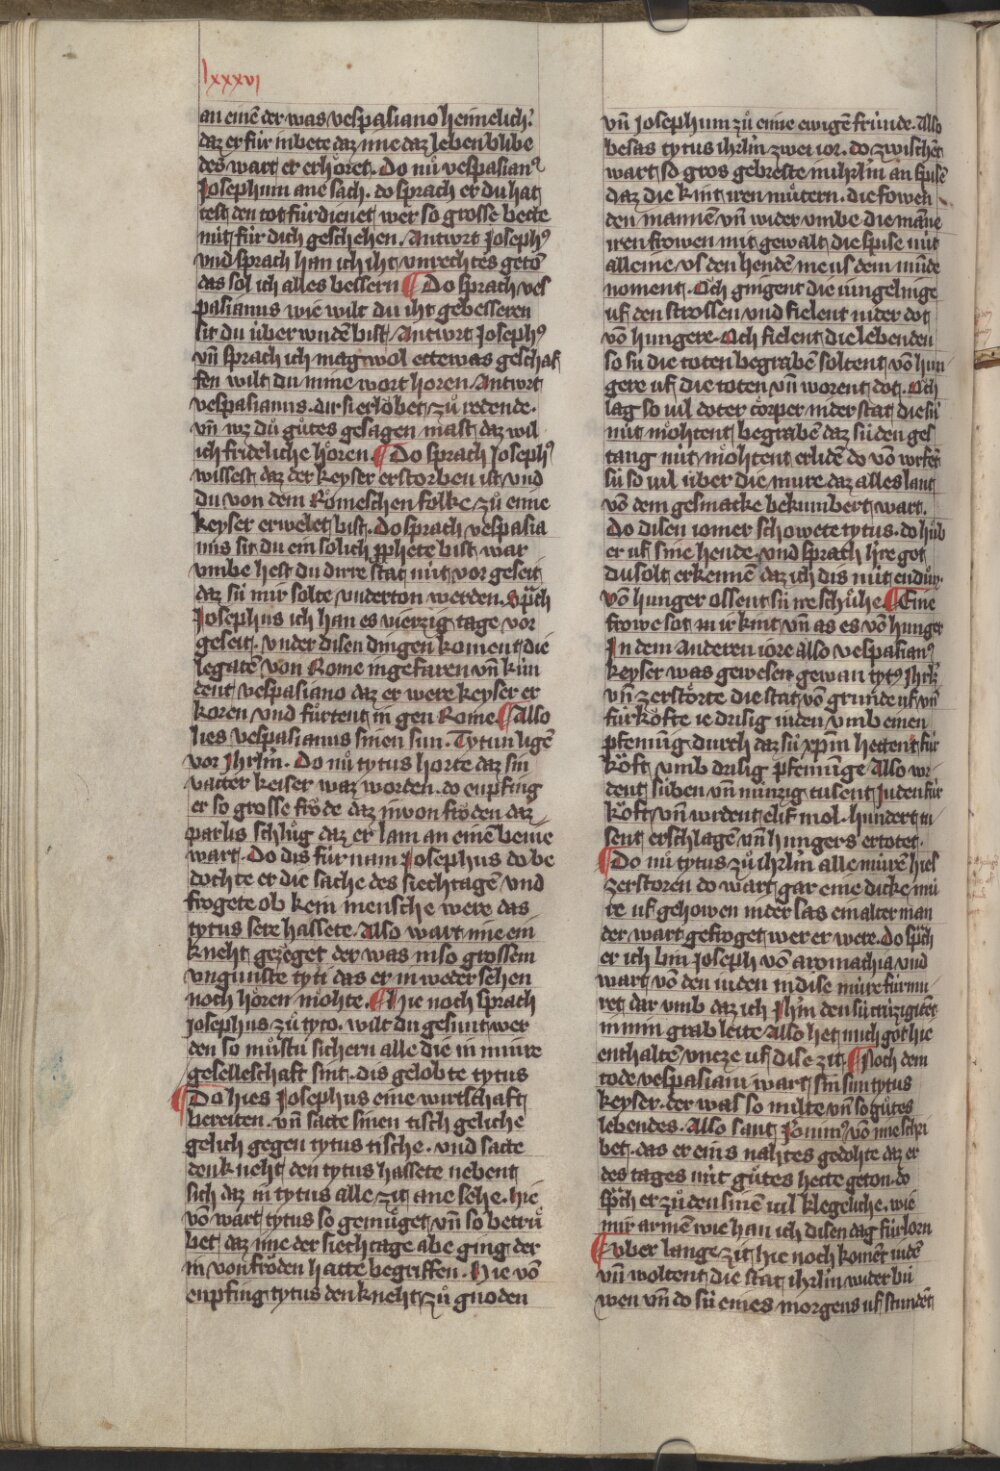 lxxxvi
an einē der was vespasiano heimelich.
daz er für in bete daz ime daz leben blibe
des wart er erhöret. Do nů vespasian⁹
Josephum ane sach. do sprach er du hat
test den tot fürdienet wer so grosse bette
nüt für dich geschehen. Antwrt Joseph⁹
vnd sprach han ich iht vnrechtes getō
das sol ich alles bessern ¶ Do sprach ves
pasianus wie wilt du iht gebesseren
sit du über wndē bist. Antwrt Joseph⁹
vn̄ sprach ich mag wol ettewas geschaf
fen wilt du mine wort horen. Antwrt
vespasianus. dir si erlobet zů redende.
vn̄ wz dů gůtes gesagen maht daz wil
ich frideliche hören. ¶ Do sprach Joseph⁹
wissest daz der keyser erstorben ist vnd
du von dem Römeschen folke zů eime
keyser erwelet bist. Do sprach vespasia
nus sit du ein solich ꝓphete bist war
vmbe hest du dirre stat nüt vor geseit
daz sü mir solte vnderton werden. Sp̄ch
Josephus ich han es vierzig tage vor
geseit. vnder disen dingen koment die
legatē von Rome in gefaren vn̄ kün
dent vespasiano daz er were keyser er
koren vnd fürtent in gen Rome ¶ Also
lies vespasianus sinen sun. Tytun ligē
vor Jhrlm̄. Do nů tytus horte daz sin
vatter keiser waz worden. do enpfing
er so grosse fröde daz in von fröden daz
parlis schlůg daz er lam an einē beine
wart. Do dis für nam Josephus do be
dochte er die sache des siechtagē vnd
frogete ob kein mensche were das
tytus sere hassete. Also wart ime ein
kneht gezöget der was in so grossem
vngunste tyti das er in weder sehen
noch hören mohte. ¶ Hie noch sprach
Josephus zů tyto. wilt du gesunt wer
den so můstu sichern alle die in minre
geselleschaft sint. dis gelobte tytus
¶ Do hies Josephus eine wirtschaft
bereiten. vn̄ satte sinen tisch geliche
gelich gegen tytus tische. vnd satte
den kneht den tytus hassete nebent
sich daz in tytus alle zit ane sehe. Hie
vō wart tytus so gemüget vn̄ so betrů
bet daz ime der siechtage abe ging der
in von fröden hatte begriffen. Hie vō
enpfing tytus den kneht zů gnoden
vn̄ Josephum zů eime ewigē fründe. Also
besas tytus ihrlm̄ zwei ior. do zwischēt
wart so gros gebreste in ihrlm̄ an spise
daz die kint iren můtern. die fowen
den mannē vn̄ wider vmbe die māne
iren frowen mit gewalt die spise nüt
alleine vs den hendē me us dem mūde
noment. Och gingent die iungelinge
uf den strossen vnd fielent nider dot
vō hungere. Och fielent die lebenden
so sü die toten begrabē soltent vō hun
gere uf die toten vn̄ worent dot. Och
lag so uil doter cörper in der stat die sü
nüt möhtent begrabē daz sü den ges
tang nüt möhtent erlidē do vō wrfēt
sü so uil über die mure daz alles lant
vō dem gesmacke bekumbert wart.
Do disen iomer schowete tytus. do hůb
er uf sine hende vnd sprach h̄re got
du solt erkennē daz ich dis nüt endůn.
vō hunger ossent sü ire schůhe ¶ Eine
frowe sot an ir kint vn̄ as es vō hunger
In dem anderen iore also vespasian⁹
keyser was gewesen gewan tyt⁹ Jhrlm̄
vn̄ zerstörte die stat vō grunde uf vn̄
fürköfte ie drisig iuden vmb einen
pfenning durch daz sü xp̄m hettent für
köft vmb drisig pfenninge Also wr
dent süben vn̄ nünzig tusent Juden für
köft vn̄ wrdent elif mol. hundert tu
sent erschlagē vn̄ hungers ertotet.
¶ Do nů tytus zů ihrlm̄ alle mürē hies
zerstoren do wart gar eine dicke mü
re uf gehowen in der sas ein alter man
der wart gefroget wer er were. do sp̄ch
er ich bin Joseph vō aromathia vnd
wart vō den iuden in dise müre fürmu
ret dar vmb daz ich Jh̄m den sü crüzigitēt
in min grab leite Also het mich got hie
enthaltē vncze uf dise zit. ¶ Noch dem
tode vespasiani wart sin sun tytus
keyser. der was so milte vn̄ so gůtes
lebendes. Also sant Jeronim⁹ vō ime schri
bet. das er eins nahtes gedohte daz er
des tages nüt gůtes hette geton. do
sp̄ch er zů den sinē uil klegeliche. wie
mir armē wie han ich disen dag fürlorn
¶ Vber lange zit hie noch komēt iudē
vn̄ woltent die stat ihrlm̄ wider bu
wen vn̄ do sü eines morgens uf stundēt